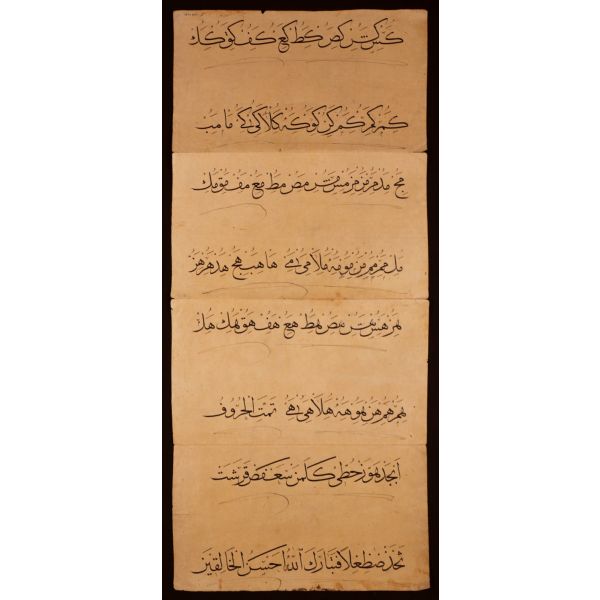 كس كص كط كع كف كو كك
كم كم كم كن كو كه كلا كى كے ما مب
مج مد مر مر مس مص مط مع مف مو مك
مل مم مم من مو مه ملا مى مے ها هب هج هد هر هز
هر هس هص هط هع هف هو هك هل
هم هم هن هو هه هلا هى هے تمت الحروف
ابجد هوز حطى كلمن سعفص قرشت
ثخذ ضظغلا فتبارك الله احسن الخالقين